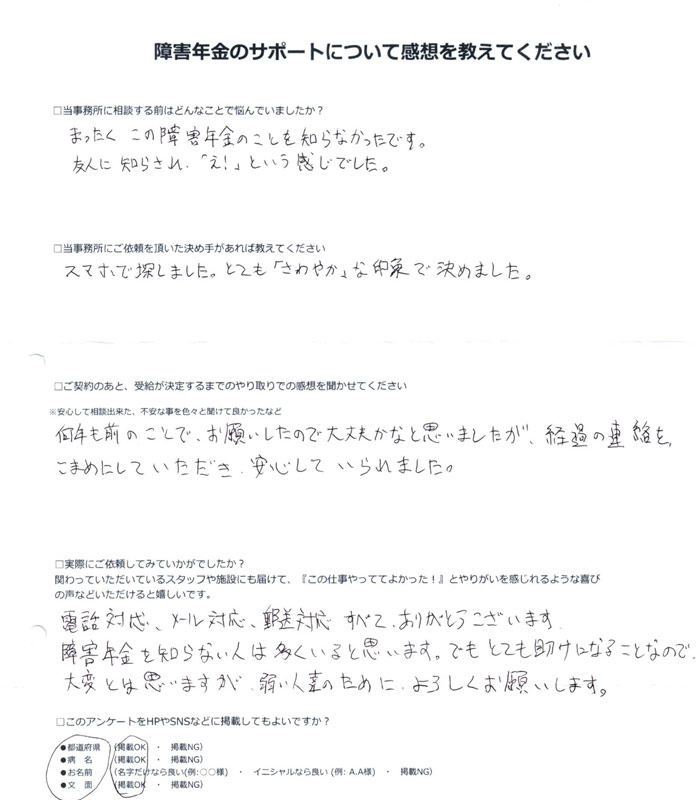 障害年金のサポートについて感想を教えてください
□当事務所に相談する前はどんなことで悩んでいましたか？
まったく この障害年金のことを知らなかったです。
友人に知らされ、「え!」という感じでした。
□当事務所にご依頼を頂いた決め手があれば教えてください
スマホで探しました。とても「さわやか」な印象で決めました。
□ご契約のあと、受給が決定するまでのやり取りでの感想を聞かせてください
※安心して相談出来た、不安な事を色々と聞けて良かったなど
何年も前のことで、お願いしたので大丈夫かなと思いましたが、経過の連絡を、
こまめにしていただき、安心していられました。
□実際にご依頼してみていかがでしたか？
関わっていただいているスタッフや施設にも届けて、『この仕事やっててよかった！』とやりがいを感じれるような喜び
の声などいただけると嬉しいです。
電話対応、メール対応、郵送対応 すべて、ありがとうございます.
障害年金を知らない人は多くいると思います。でもとても助けになることなので、
大変とは思いますが、弱い人達のために、よろしくお願いします。
□このアンケートをHPやSNSなどに掲載してもよいですか？
●都道府県 （掲載OK ・ 掲載NG）
●病 名 （掲載OK ・ 掲載NG）
●お名前 （名字だけなら良い(例:○○様) ・ イニシャルなら良い (例: A.A様) ・ 掲載NG）
●文 面 （掲載OK ・ 掲載NG）